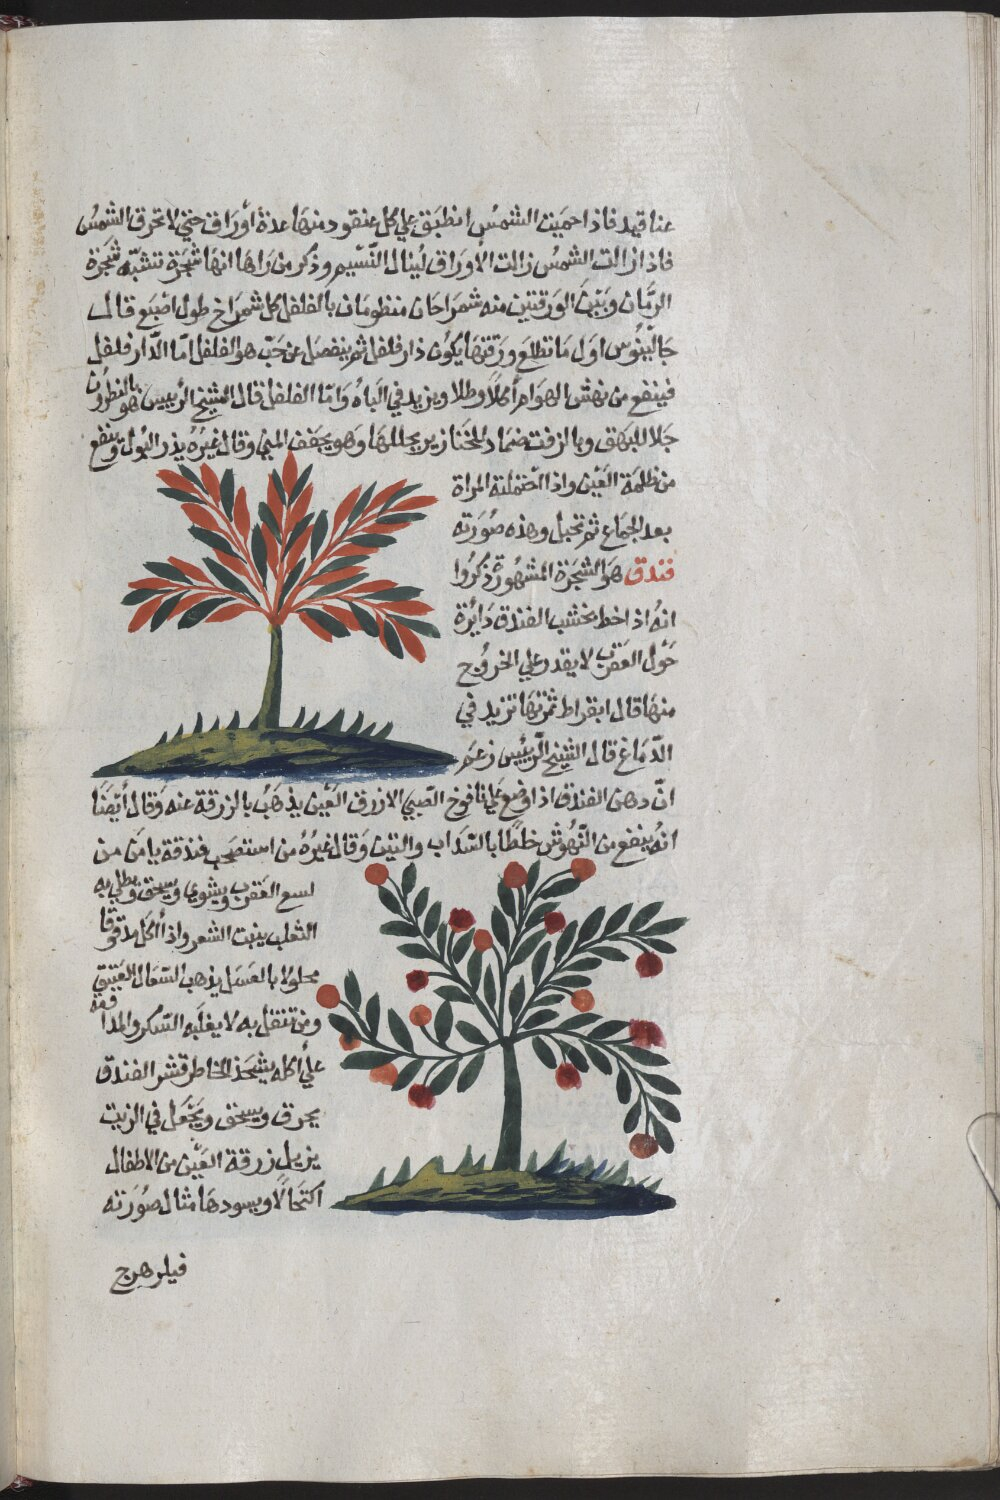 عناقيد فاذا حميت الشمس انطبق علي كل عنقود منها عدة أوراق حتي لا تحرق الشمس
فاذا زالت الشمس زالت الأوراق لينال النسيم وذكر من رآها انها شجرة تشبه شجرة
الرمان وبين الورقتين منه شمراخان منظومان بالفلفل كل شمراخ طول اصبع قال
جالينوس اول ما تطلع ورقتها يكون دار فلفل ثم ينفصل عن حب هو الفلفل امّا الدّار فلفل
فينفع من نهش الهوام أكلاً وطلا ويزيد في الباه وامّا الفلفل قال الشيخ الرئيس هو بالنطرون
جلا للبهق وبالزفت ضماد للخنازير يحللها وهو يجفف المني وقال غيره يذر البول وينفع
من ظلمة العين واذا احتملته المراة
بعد الجماع ثم تحبل وهذه صورته
فندق هو الشجرة المشهورة ذكروا
انه اذا خط بخشب الفندق دايرة
حول العقرب لا يقدر علي الخروج
منها قال ابقراط ثمرتها تزيد في
الدّماغ قال الشيخ الرّييس زعم
انّ دهن الفندق اذا وضع علي نافوخ الصبي الازرق العين يذهب بالزرقة عنه وقال أيضا
انه ينفع من النهوش خلطا بالسداب والتين وقال غيره من استصحب فندقة يامن من
لسع العقرب ويشوي ويسحق ويطلي به
الثعلب ينبت الشعر واذا أكل مدقوقا
محلولا بالعسل يذهب السعال العتيق
ومن تنقل به لا يغلبه السكر والمدا
ومة
علي أكله يشحذ الخاطر قشر الفندق
يحرق ويسحق ويجعل في الزيت
يزيل زرقة العين من الاطفال
اكتحالا ويسودها مثال صورته
فيلزهرج